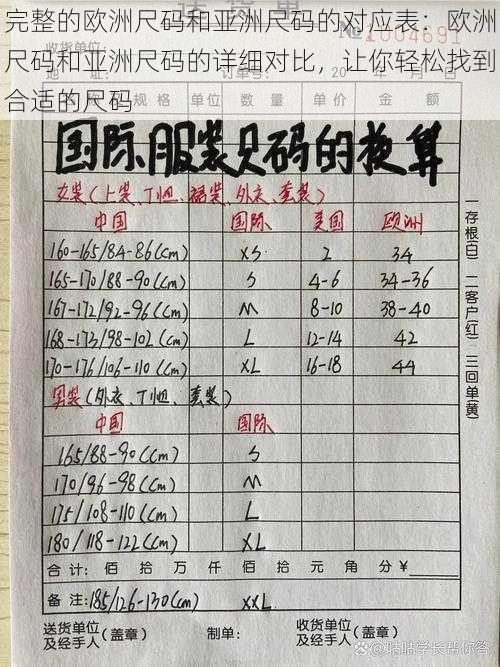 完整的欧洲尺码和亚洲尺码的对应表：欧洲
尺码和亚洲尺码的详细对比，让你轻松找到
合适的尺码
国际服装尺码的换算
女装(上装、T恤、裙装、外衣、套装)
中国 国际 美国 欧洲
160-165/84-86(cm) XS 2 34
165-170/88-90(cm) S 4-6 34-36
167-172/92-96(cm) M 8-10 38-40
168-173/98-102(cm) L 12-14 42
170-176/106-110(cm) XL 16-18 44
男装(外衣、T恤、套装)
中国 国际
165/88-90(cm) S
170/96-98(cm) M
175/108-110(cm) L
180/118-122(cm) XL
合计： 佰 拾 万 仟 佰 拾 元 角 分 ¥
备注：185/126-130(cm) XXL
送货单位
及经手人(盖章) 制单： 收货单位
及经手人(盖章)
一存根(白) 二客户(红) 三回单(黄)